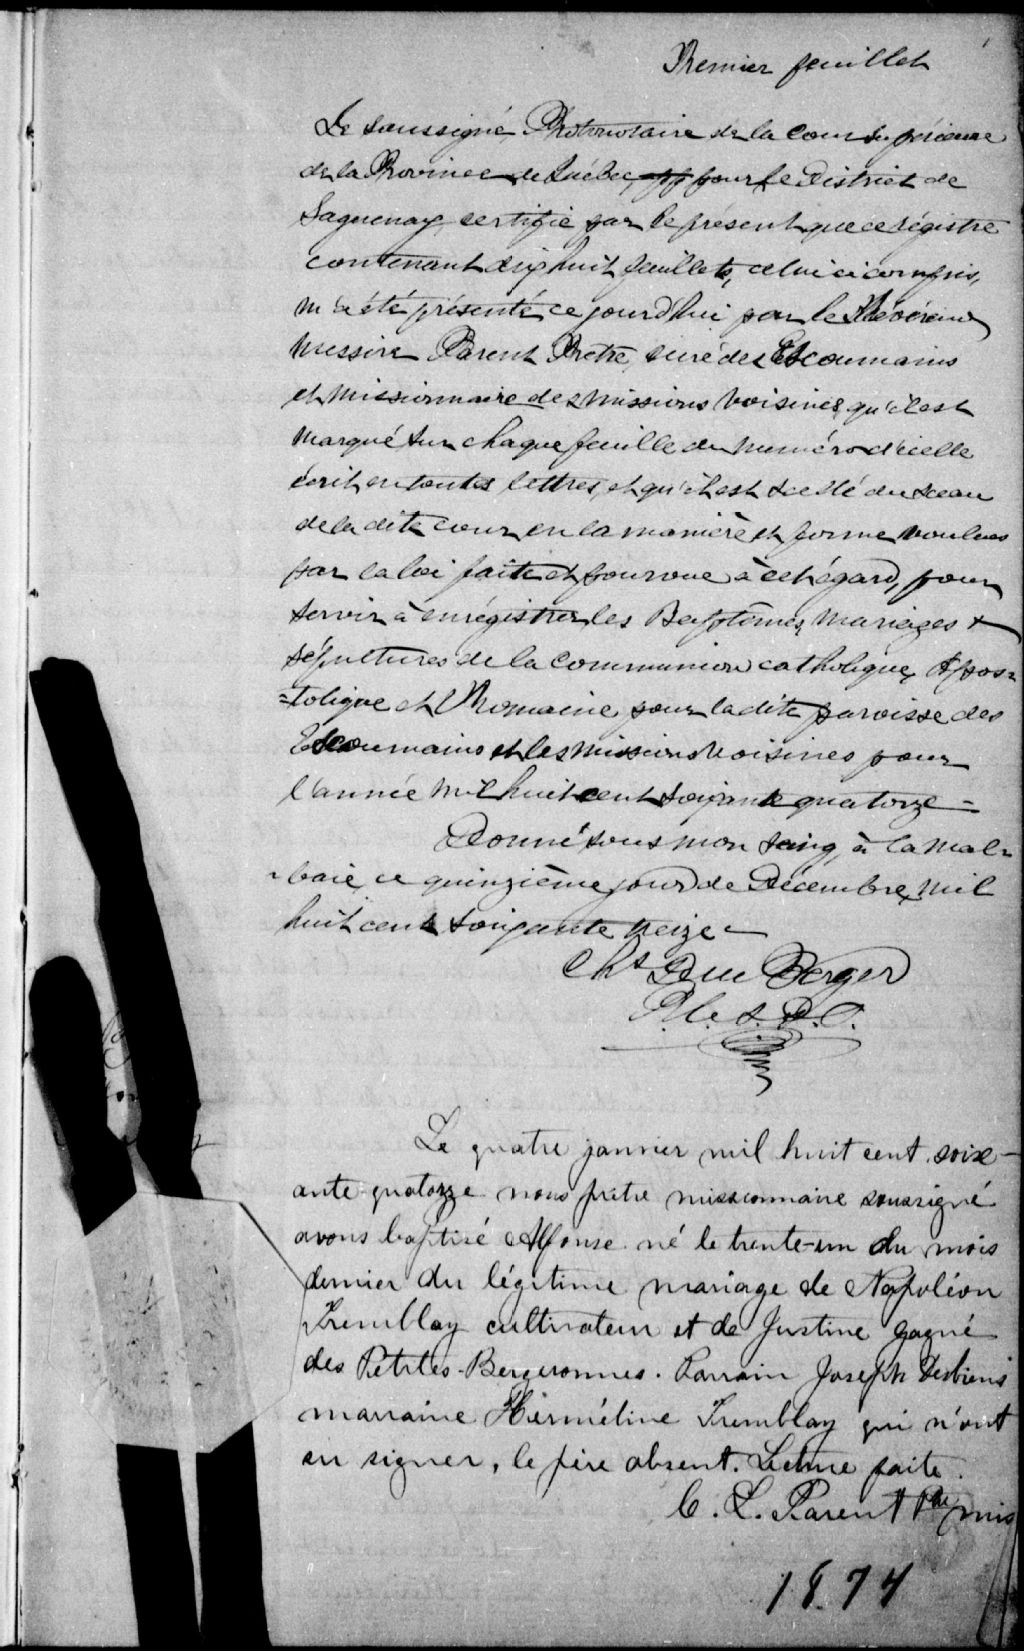 Premier feuillet
Le soussigné, Protonotaire de la Cour Supérieure
de la Province de Québec, pour le District de
Saguenay certifie par le présent que ce régistre
contenant dix huit feuillets, celui ci compris,
m'a été présenté ce jourd'hui par le Révérend
Messire Parent Prêtre, curé des Escoumains
et missionnaire des missions voisines, qu'il est
marqué sur chaque feuille du numéro d'icelle
écrit en toutes lettres, et qu'il est scellé du sceau
de la dite cour en la manière et forme voulues
par la loi faite et pourvue à cet égard, pour
servir à enrégistrer les Baptêmes, Mariages &
sépultures de la communion catholique, Apos=
=tolique et Romaine pour la dite paroisse des
Escoumains et les missions voisines pour
l'année mil huit cent soixante quatorze =
Donné sous mon seing, à la Mal=
=baie, ce quinzième jour de Décembre, mil
huit cent soixante treize -
Chs Du Berger
P. C. S. D. S.
Le quatre janvier mil huit cent soix-
ante-quatorze nous prêtre missionnaire soussigné
avons baptisé Alfonse né le trente-un du mois
dernier du légitime mariage de Napoléon
Tremblay cultivateur et de Justine Gagné
des Petites-Bergeronnes. Parrain Joseph Desbiens
marraine Herméline Tremblay qui n'ont
su signer, le père absent. Lecture faite.
C. L. Parent Ptre mis
1874